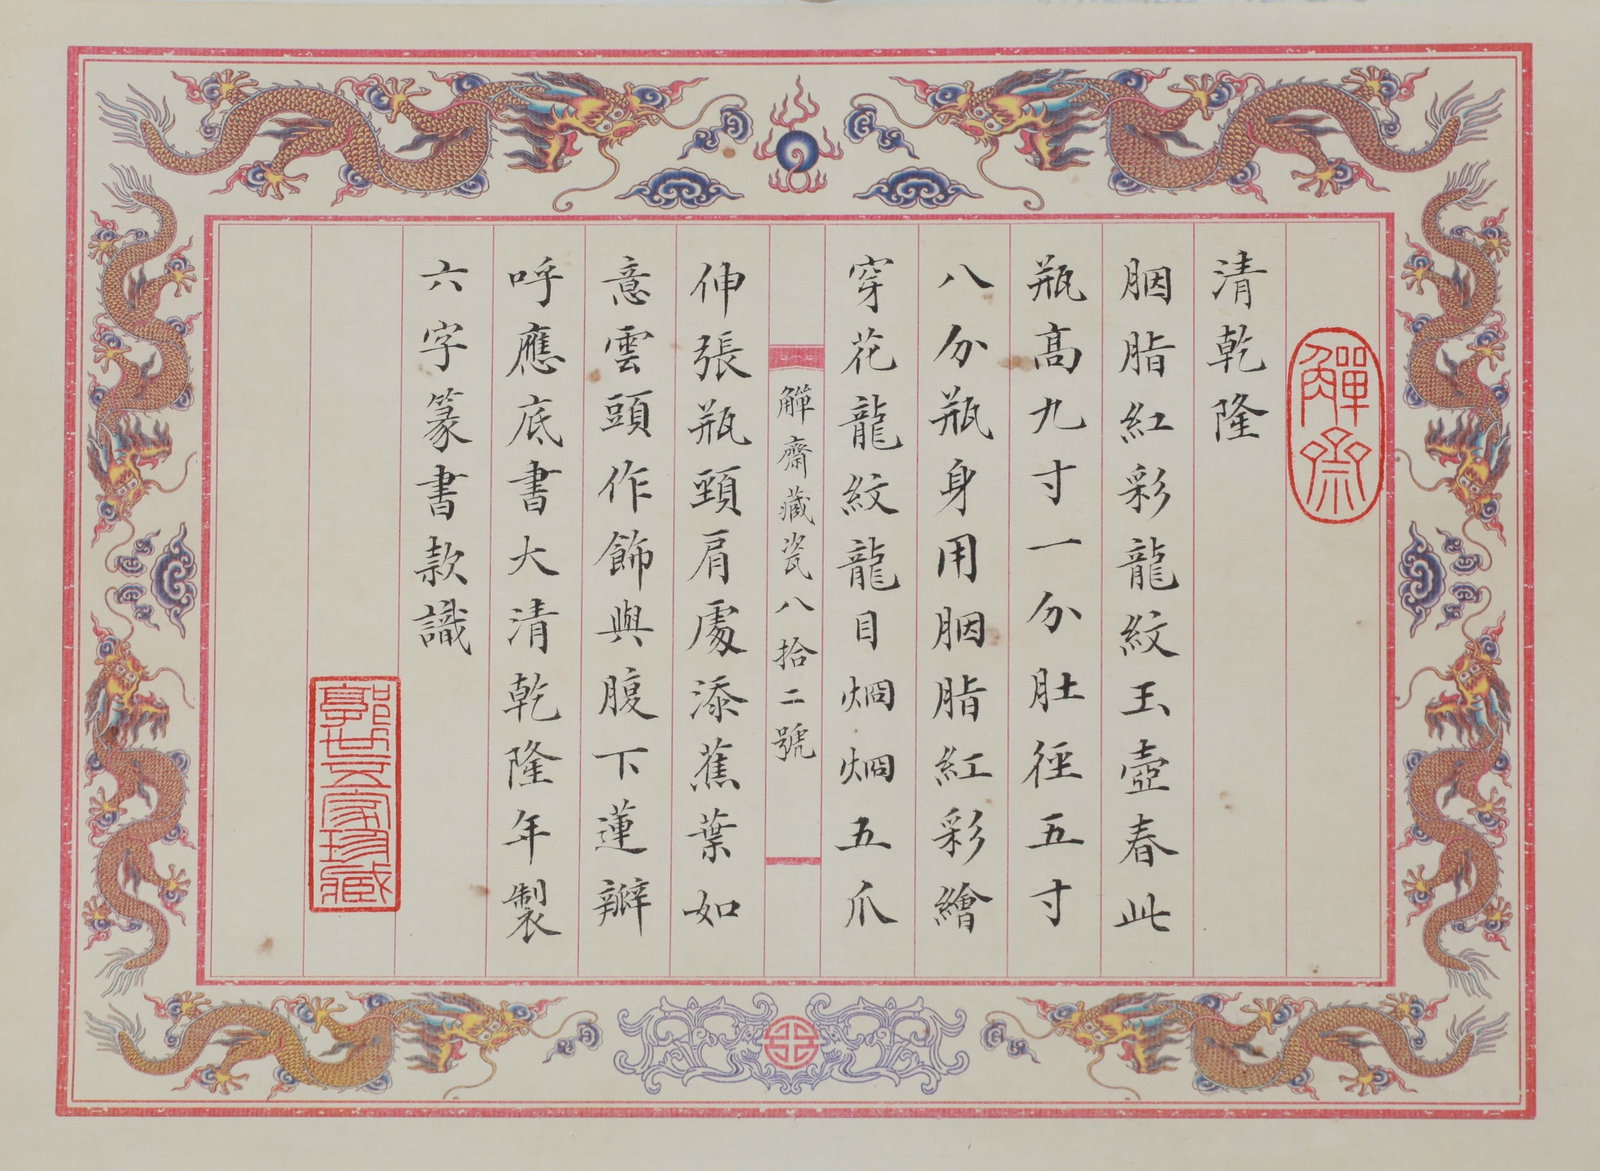 觶齋
清乾隆
胭脂紅彩龍紋玉壺春此
瓶高九寸一分肚徑五寸
八分瓶身用胭脂紅彩繪
穿花龍紋龍目烱烱五爪
觶齋藏瓷八拾二號
伸張瓶頸肩處添蕉葉如
意雲頭作飾與腹下蓮瓣
呼應底書大清乾隆年製
六字篆書款識
郭世五家珍藏